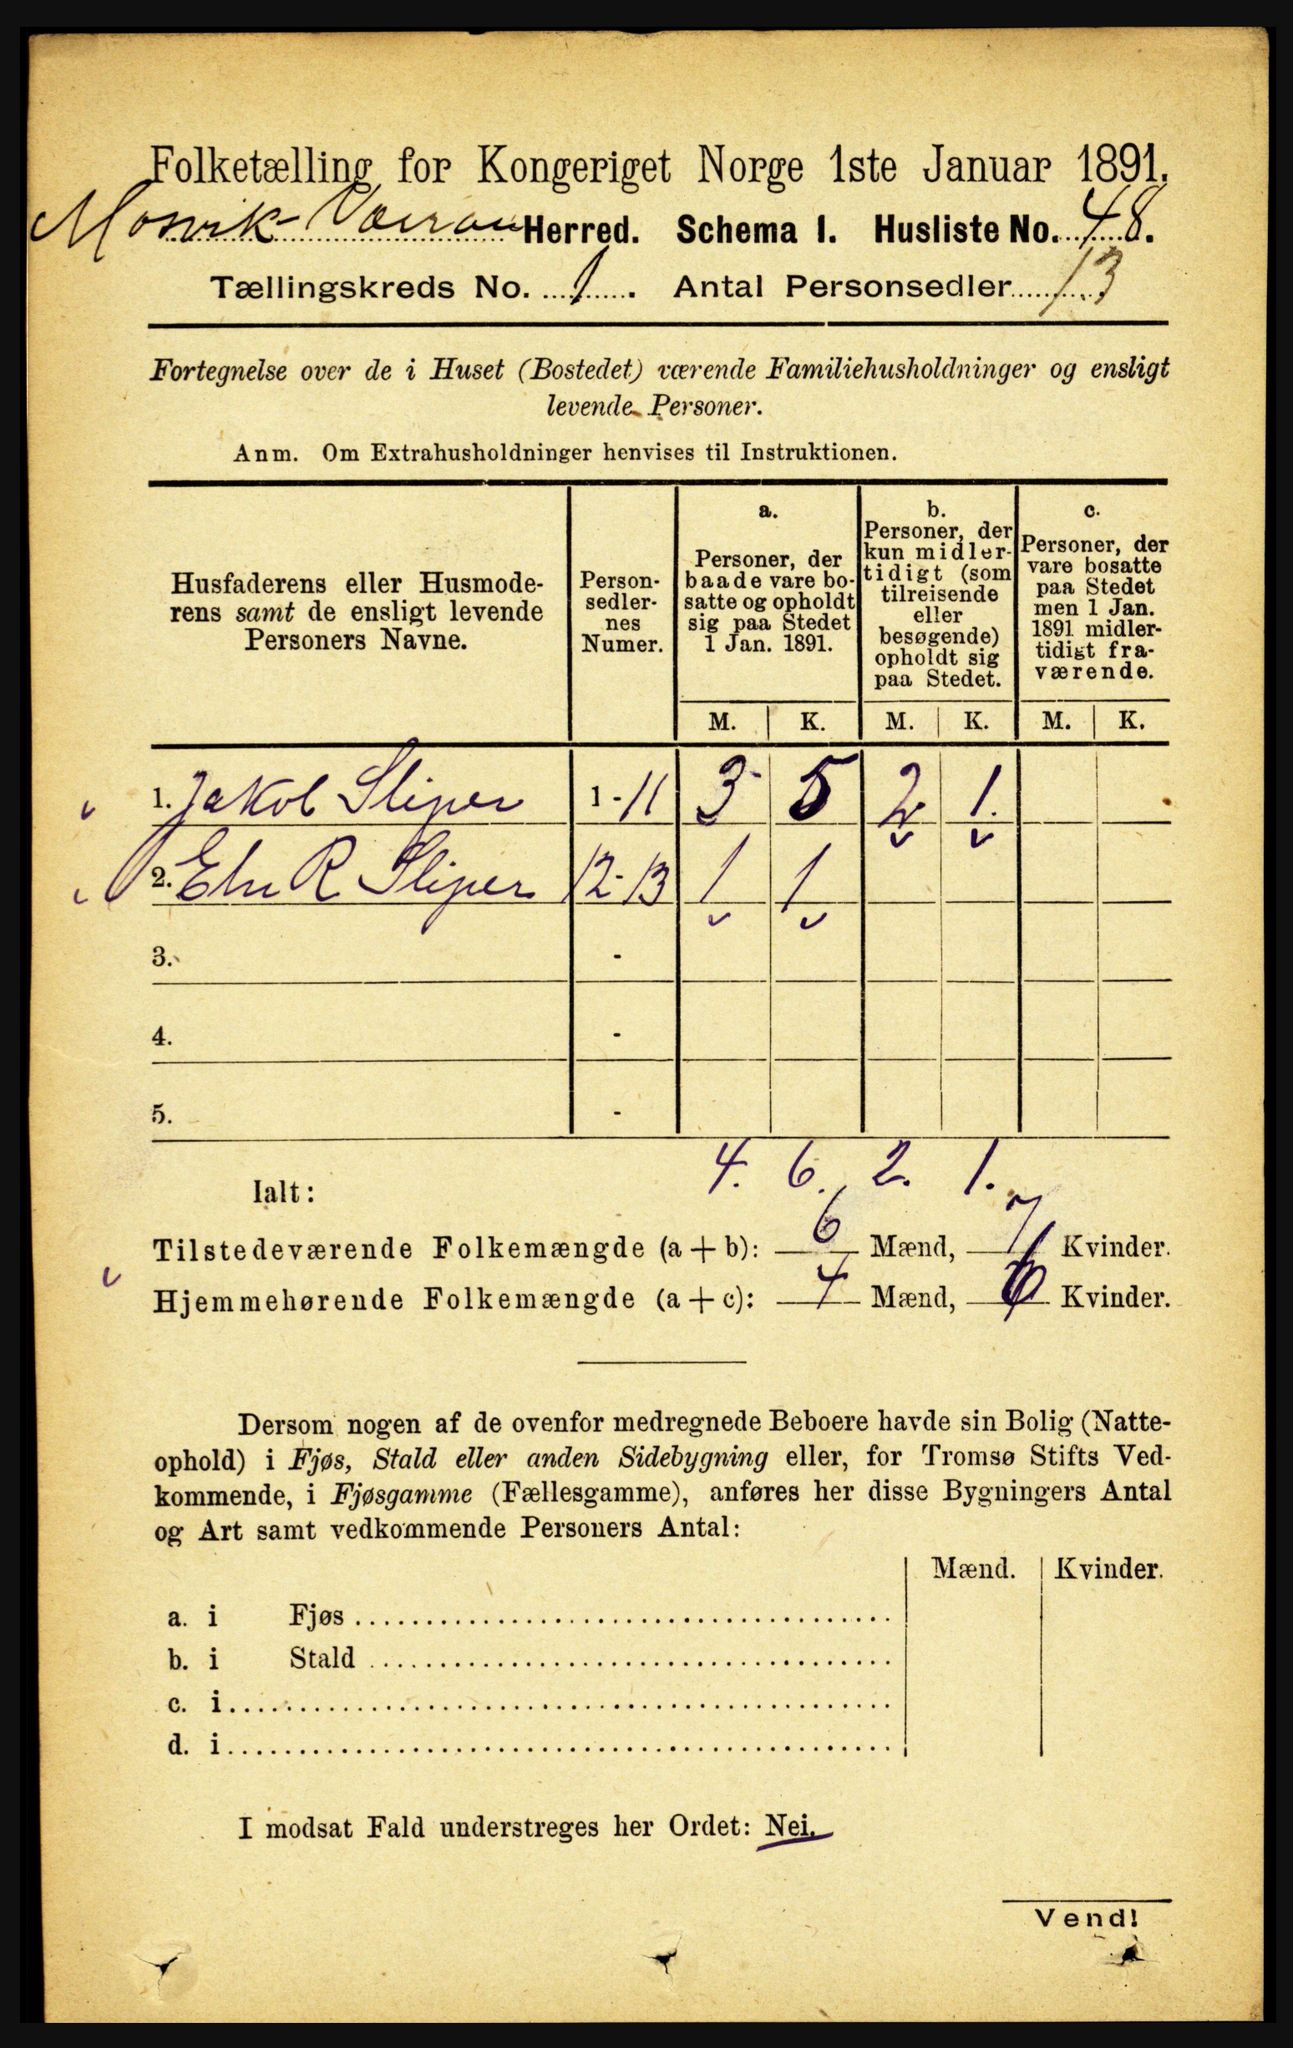 Folketælling for Kongeriget Norge 1ste Januar 1891.
Mosvik-Værran Herred. Schema I. Husliste No. 48.
Tællingskreds No. 1. Antal Personsedler 13
Fortegnelse over de i Huset (Bostedet) værende Familiehusholdninger og ensligt
levende Personer.
Anm. Om Extrahusholdninger henvises til Instruktionen.
Husfaderens eller Husmode-
rens samt de ensligt levende
Personers Navne.
Person-
sedler-
nes
Numer.
a.
Personer, der
baade vare bo-
satte og opholdt
sig paa Stedet
1 Jan. 1891.
b.
Personer, der
kun midler-
tidigt (som
tilreisende
eller
besøgende)
opholdt sig
paa Stedet.
c.
Personer, der
vare bosatte
paa Stedet
men 1 Jan.
1891 midler-
tidigt fra-
værende.
M. K. M. K. M. K.
1. Jakob Sliper 1-11 3 5 2 1.
2. R Sliper 12-13 1 1
3. -
4. -
5. -
Ialt: 4. 6. 2. 1.
Tilstedeværende Folkemængde (a+b): 6 Mænd, 7 Kvinder.
Hjemmehørende Folkemængde (a+c): 4 Mænd, 6 Kvinder.
Dersom nogen af de ovenfor medregnede Beboere havde sin Bolig (Natte-
ophold) i Fjøs, Stald eller anden Sidebygning eller, for Tromsø Stifts Ved-
kommende, i Fjøsgamme (Fællesgamme), anføres her disse Bygningers Antal
og Art samt vedkommende Personers Antal:
Mænd. Kvinder.
a. i Fjøs
b. i Stald
c. i
d. i
I modsat Fald understreges her Ordet: Nei.
Vend!